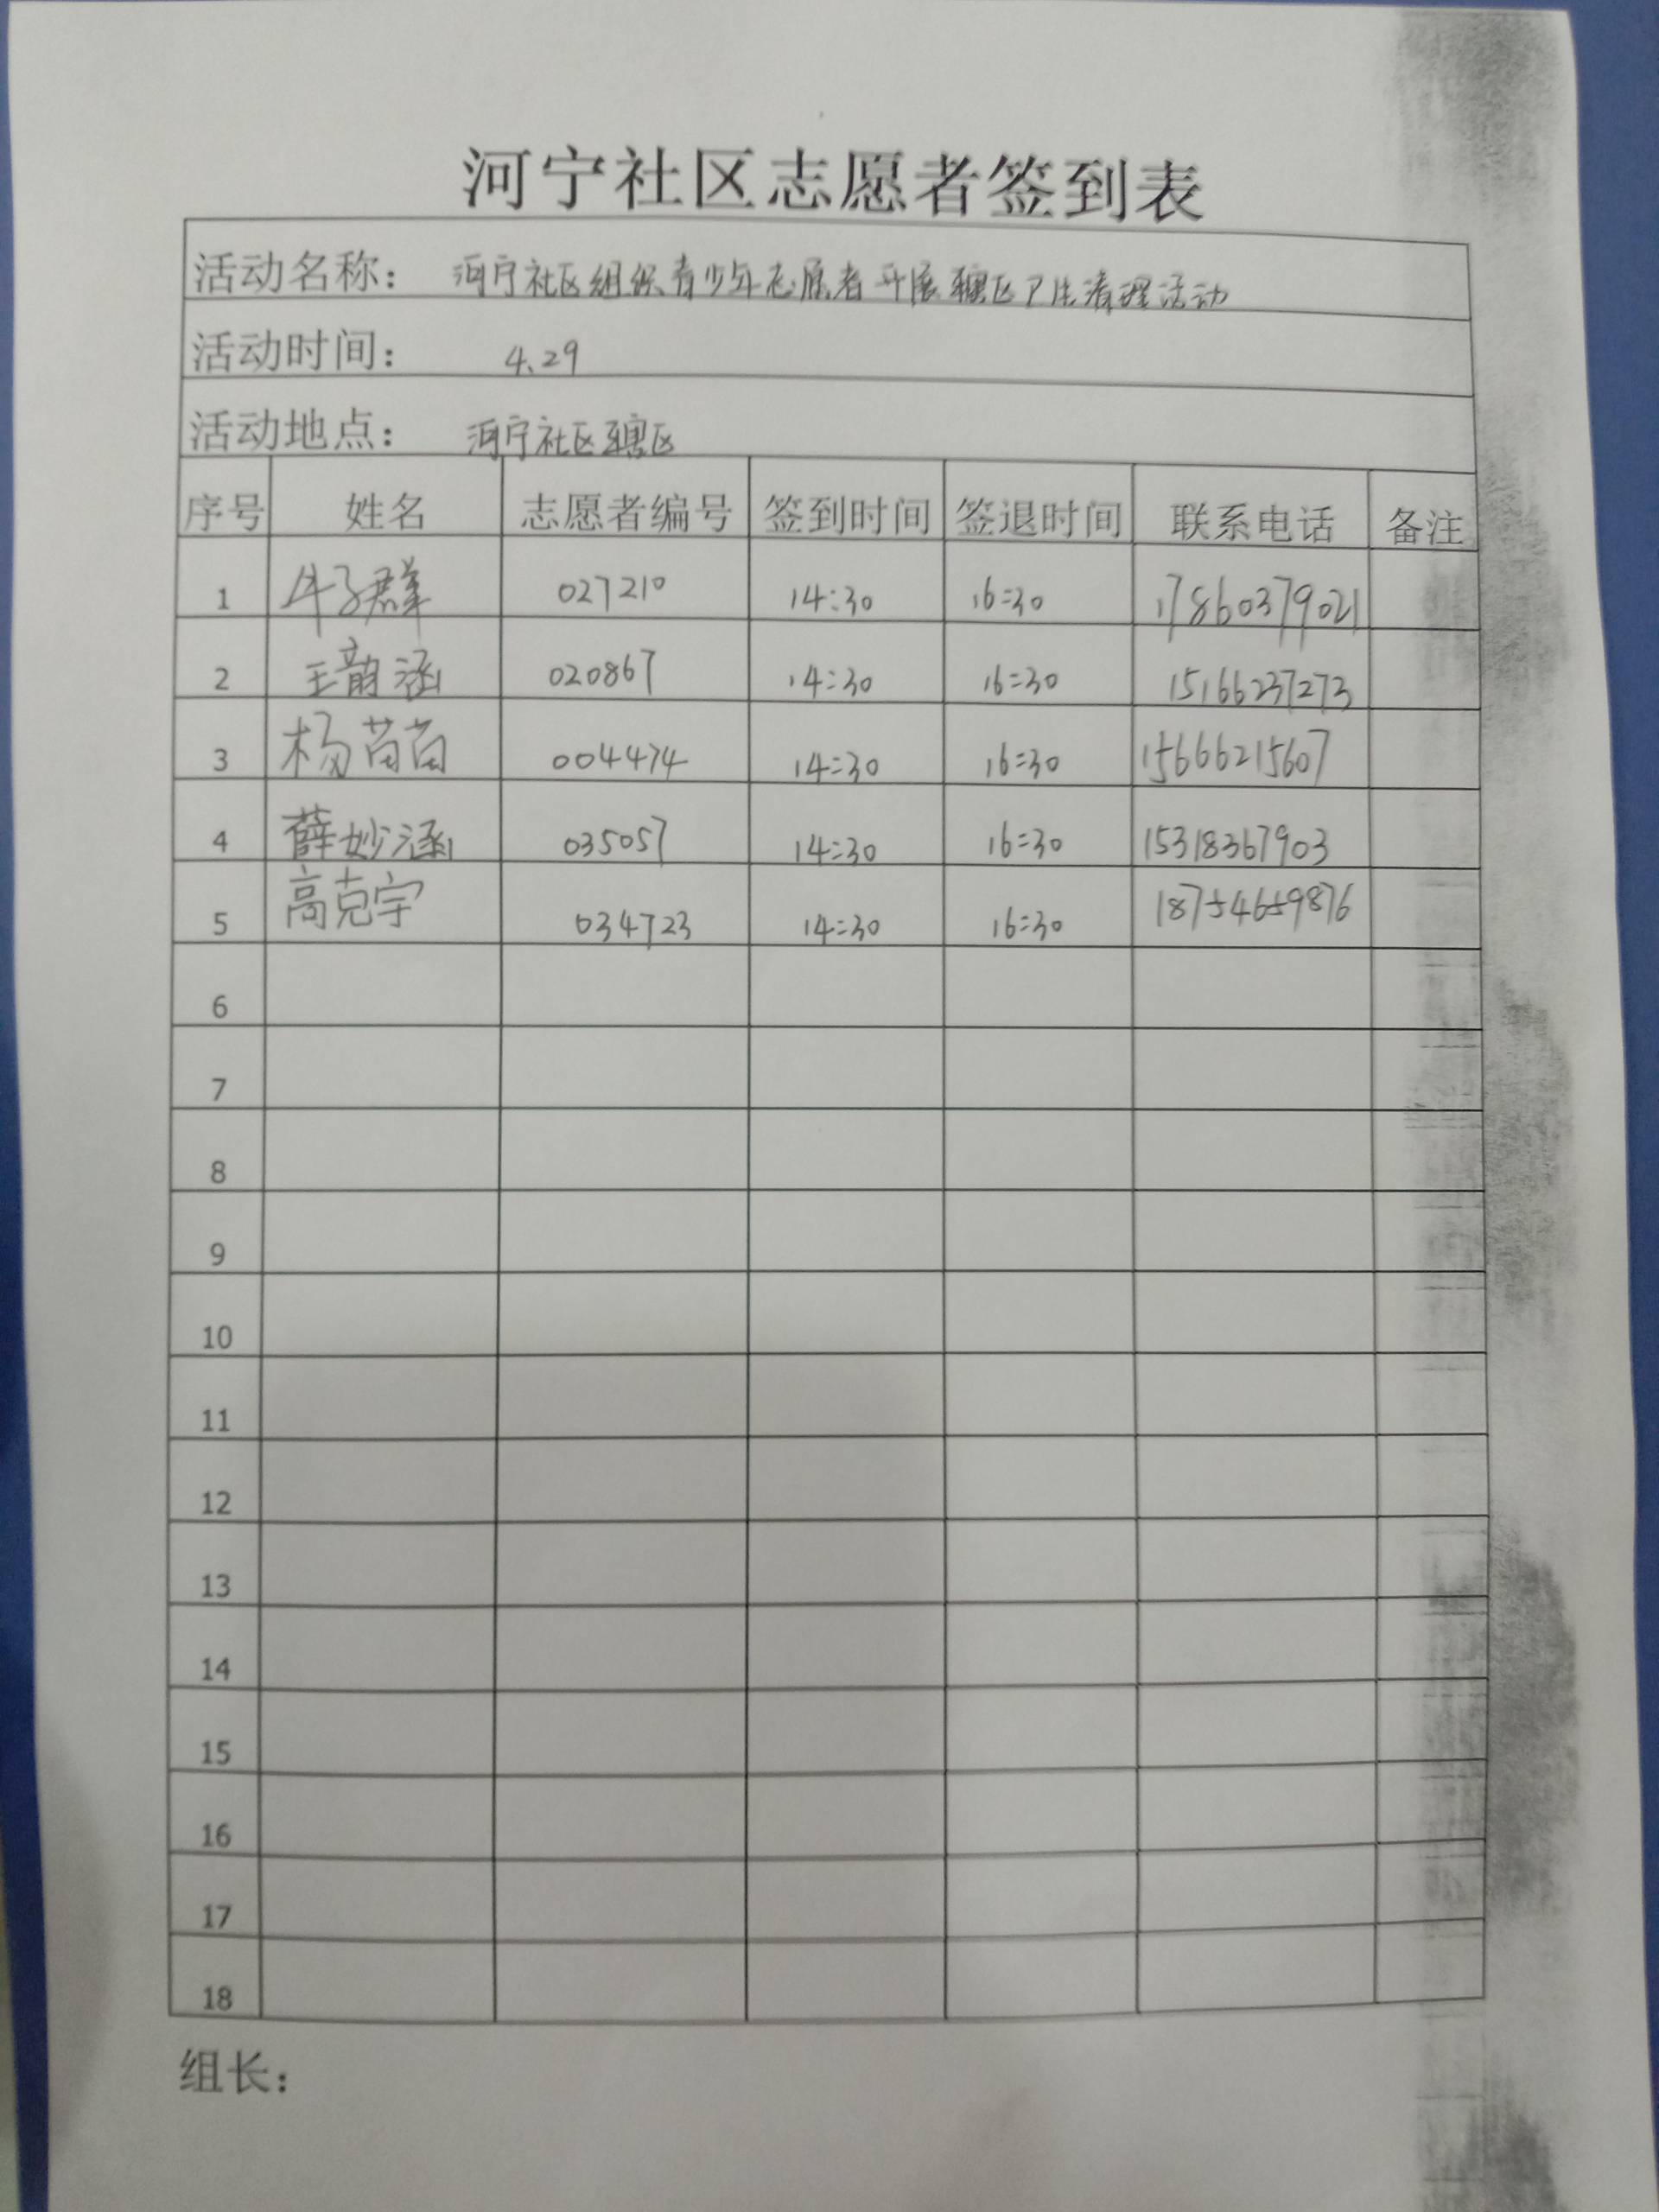 河宁社区志愿者签到表
活动名称： 河宁社区组织青少年志愿者开展辖区卫生清理活动
活动时间： 4.29
活动地点： 河宁社区辖区
序号 姓名 志愿者编号 签到时间 签退时间 联系电话 备注
1 牛子群 027210 14:30 16:30 17860379021
2 王韵涵 020867 14:30 16:30 15166237273
3 杨苗苗 004474 14:30 16:30 15666215607
4 薛妙涵 035057 14:30 16:30 15318367903
5 高克宇 034723 14:30 16:30 18754659876
6
7
8
9
10
11
12
13
14
15
16
17
18
组长：